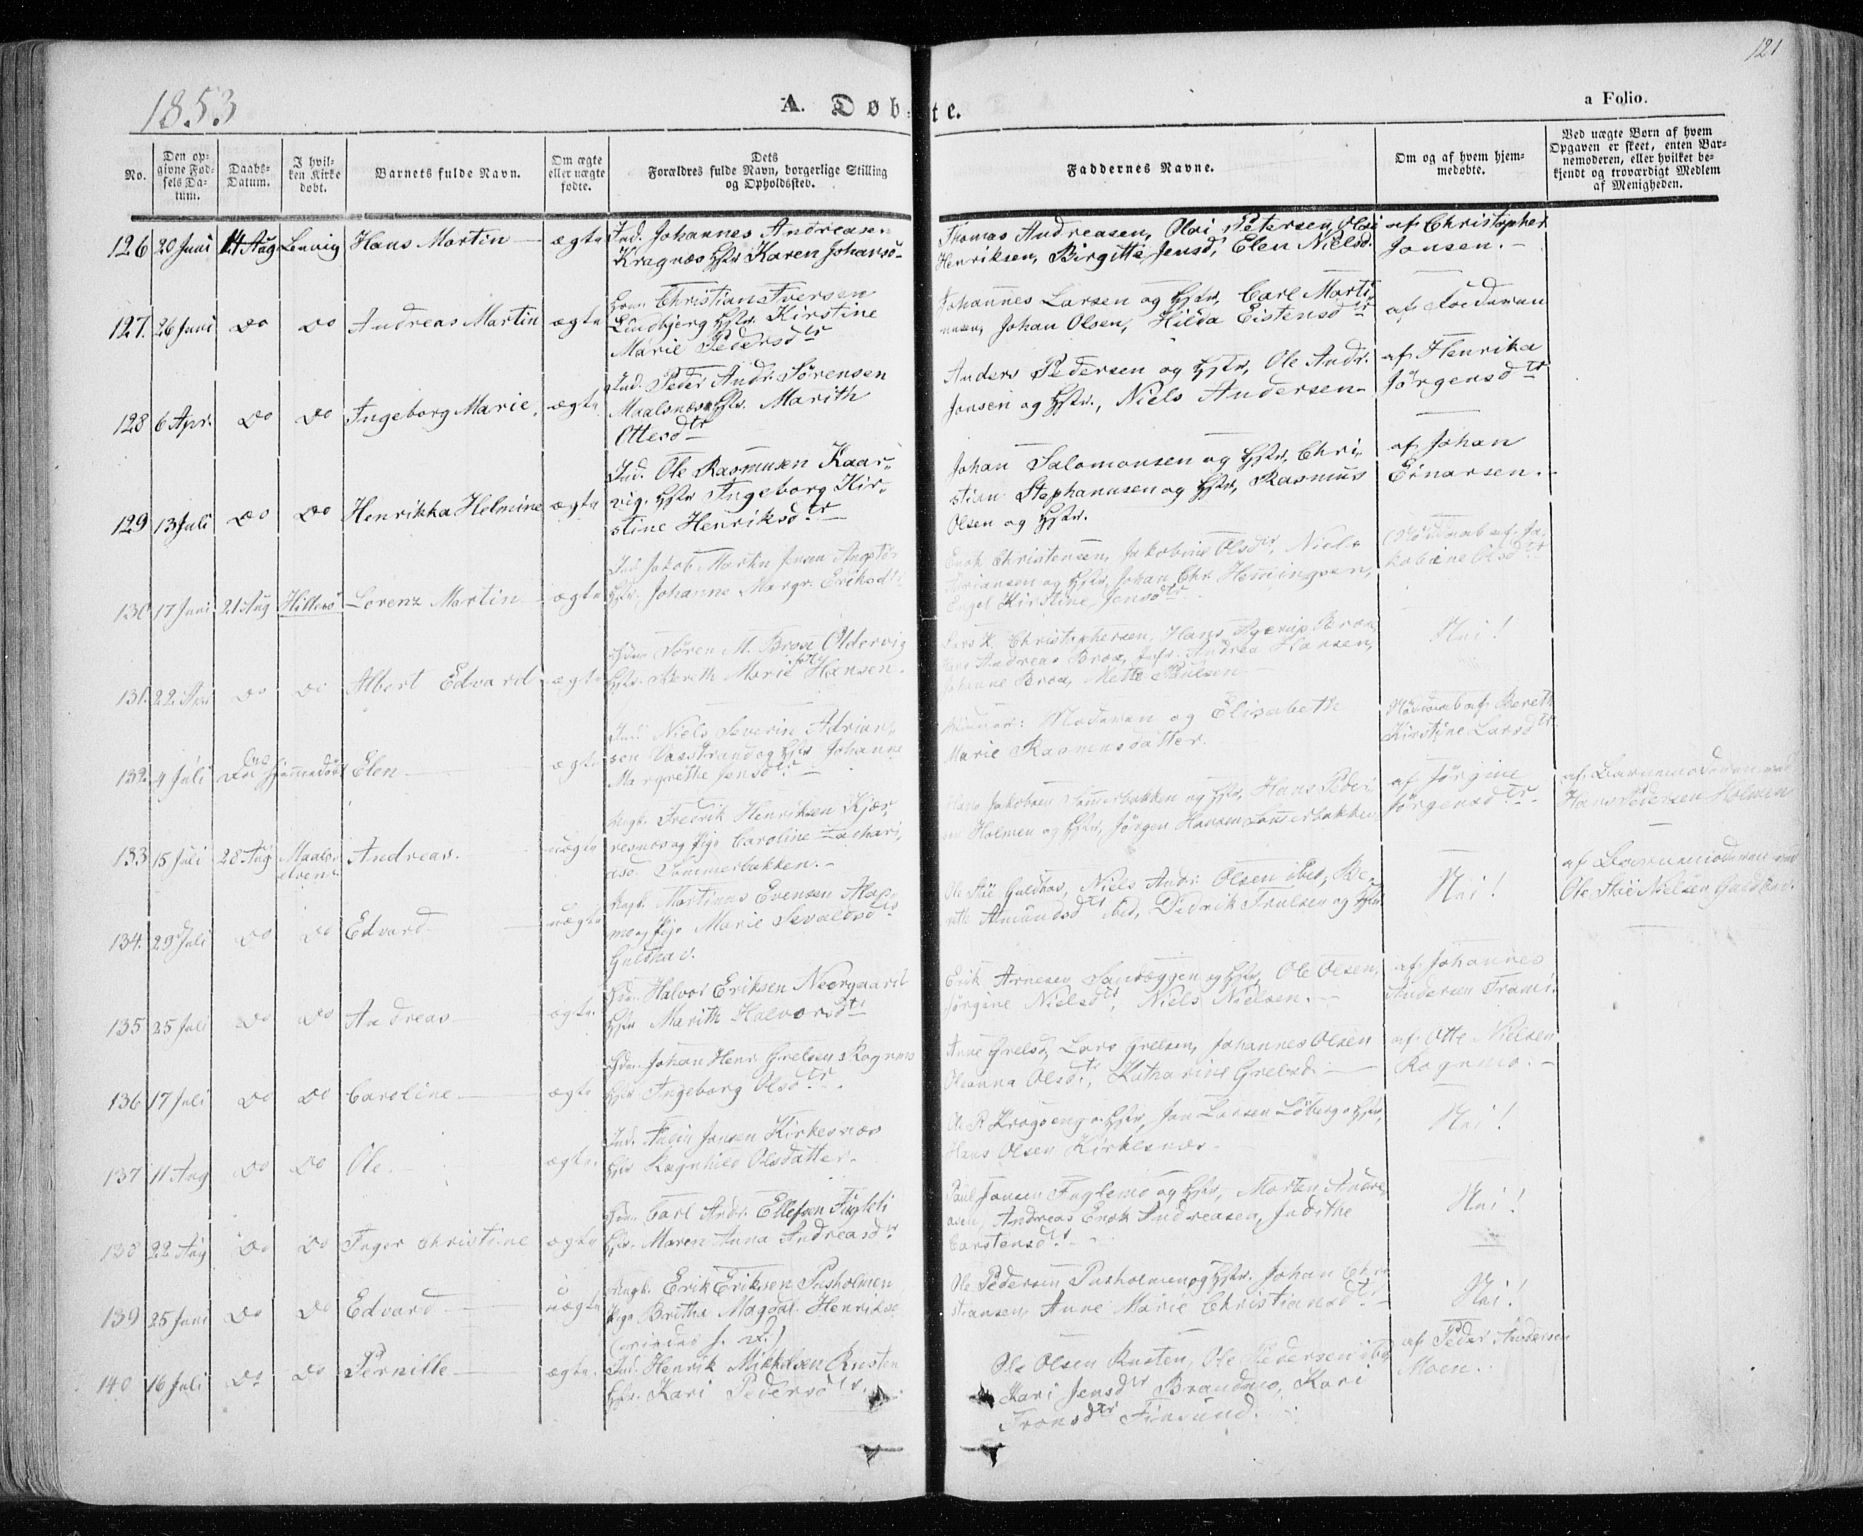 121
1853
A. Døbte.
a Folio.
No.
Den opgivne Fødsels Datum.
Daabs-Datum.
I hvilken Kirke døbt.
Barnets fulde Navn.
Om ægte eller uægte fødte.
Dets Forældres fulde Navn, borgerlige Stilling og Opholdssted.
Faddernes Navne.
Om og af hvem hjemmedøbte.
Ved uægte Børn af hvem Opgaven er skeet, enten Barnemoderen, eller hvilket bekjendt og troværdigt Medlem af Menigheden.
126 20 Juni 14 Aug Lenvig Hans Martin ægte
Ind. Johannes Andreasen
Kragnæs Hstr Karen Johansd
Thomas Andreasen, Olai Petersen, Olai
Henriksen, Birgitte Jensd, Elen Nielsd
af Christopher
Jonsen.
127. 26 Juni Do Do Andreas Martin ægte
Christian Iversen
Lindbjerg Hstr. Kirstine
Marie Pedersdtr
Johannes Larsen og Hstr, Carl Marti
nusen, Johan Olsen, Hilda Eistensdtr
af Faderen
128 6 Apr. Do Do Ingeborg Marie, ægte
Ind. Peder Andr. Sørensen
Maalsnæs Hstr. Marith
Ottesdtr
Anders Pedersen og Hstr, Ole Andr.
Jonsen og Hstr., Niels Andersen
af Henrika
Jørgensdtr
129 13 Juli Do Do Henrikka Helmine ægte
Ind. Ole Rasmusen Kaar
vig. Hstr Ingeborg Kir
stine Henriksdtr
Johan Salomonsen og Hstr, Chri
stian Stephanusen og Hstr, Rasmus
Olsen og Hstr.
af Johan
Einarsen.
130 17 Juni 21 Aug Hillesø Lorenz Martin ægte
Ind. Jakob Martin Jensen
Hstr. Johanne Margr. Eriksdtr
Enok Christensen, Jakobine Olsdtr, Niels
Adriansen og Hstr, Johan Chr. Hemmingsen,
Engel Kirstine Jensdtr
Nøddaab af Ja
kobine Olsdtr
131. 22 Do Do Albert Edvard ægte
Søren M. Brox Oldervig
Hstr. Berith Marie Hansen.
Lars K. Christophersen, Hans Brox,
Andreas Brox, Andrea Hansen,
Johanne Brox, Mette Poulsen
Nei!
132. 4 Juli Hjemmedøbt Elen ægte
Ind. Niels Severin Adrian
sen Vasstrand og Hstr Johanne
Margrethe Jensdtr
Moderen og Elisabeth
Marie Rasmusdatter.
Nøddaab af Bereth
Kirstine Larsdtr
133 15 Juli 28 Aug Maalselvens Andreas. uægte
Ungk. Fredrik Henriksen Kjær
resnæs og Pige Caroline Zachari
asd. Sommerbakken.
Hans Jakobsen Sommerbakken og Hstr, Hans Peder
sen Holmen og Hstr, Jørgen Hansen Sommerbakken
af Jørgine
Jørgensdtr.
af Barnemoderen ved
Hans Pedersen Holmen
134. 29 Juli Do Do Edvard uægte
Ungk. Martinus Evensen
mo og Pige Marie Sevaldsdtr
Guldhav.
Ole Guldhav, Niels Andr. Olsen ibid, Be
reth Amundsdtr ibid, Didrik Trulsen og Hstr
Nei!
af Barnemoderen ved
Ole Nielsen Guldhav.
135 25 Juli Do Do Andreas ægte.
Halvor Eriksen Neergaard
Hstr Marith Halvorsdtr
Erik Arnesen Sandvæggen og Hstr, Ole Olsen,
Jørgine Nielsdtr, Niels Nielsen.
af Johannes
Andersen
136 17 Juli Do Do Caroline ægte
Johan Henr. Grelsen Rognmo
Hstr Ingeborg Olsdtr
Anne Grelsd, Lars Grelsen, Johannes Olsen
Oleanna Olsdtr, Katharine Grelsd.
af Otte Nielsen
Rognmo.
137 11 Aug Do Do Ole. ægte.
Ind. Jonsen Kirkesnæs
Hstr Ragnhild Olsdatter.
Ole P. Krogseng og Hstr, Jon Larsen Løberg og Hstr,
Hans Olsen Kirkesnæs.
Nei!
138 22 Aug Do Do Inger Christine ægte
Carl Andr. Ellefsen Fugleli
Hstr. Maren Anna Andreasdtr
Paul Jonsen Fuglemo og Hstr, Morten Andre
asen, Andreas Enok Andreasen, Judithe
Carstensdtr
Nei!
139 25 Juni Do Do Edvard uægte
Ungk. Erik Eriksen
Pige Britha Magdal. Henriksd
Ole Pedersen og Hstr. Johan Chri
stiansen, Anne Marie Christiansdtr
Nei!
140 16 Juli Do Do Pernille ægte.
Ind. Henrik Mikkelsen Rusten
Hstr. Kari Pedersdtr.
Ole Olsen Rusten, Ole Pedersen ibid
Kari Jensdtr Brandmo, Kari
Tronsdtr Finsund.
af Peder Andersen
Moen.